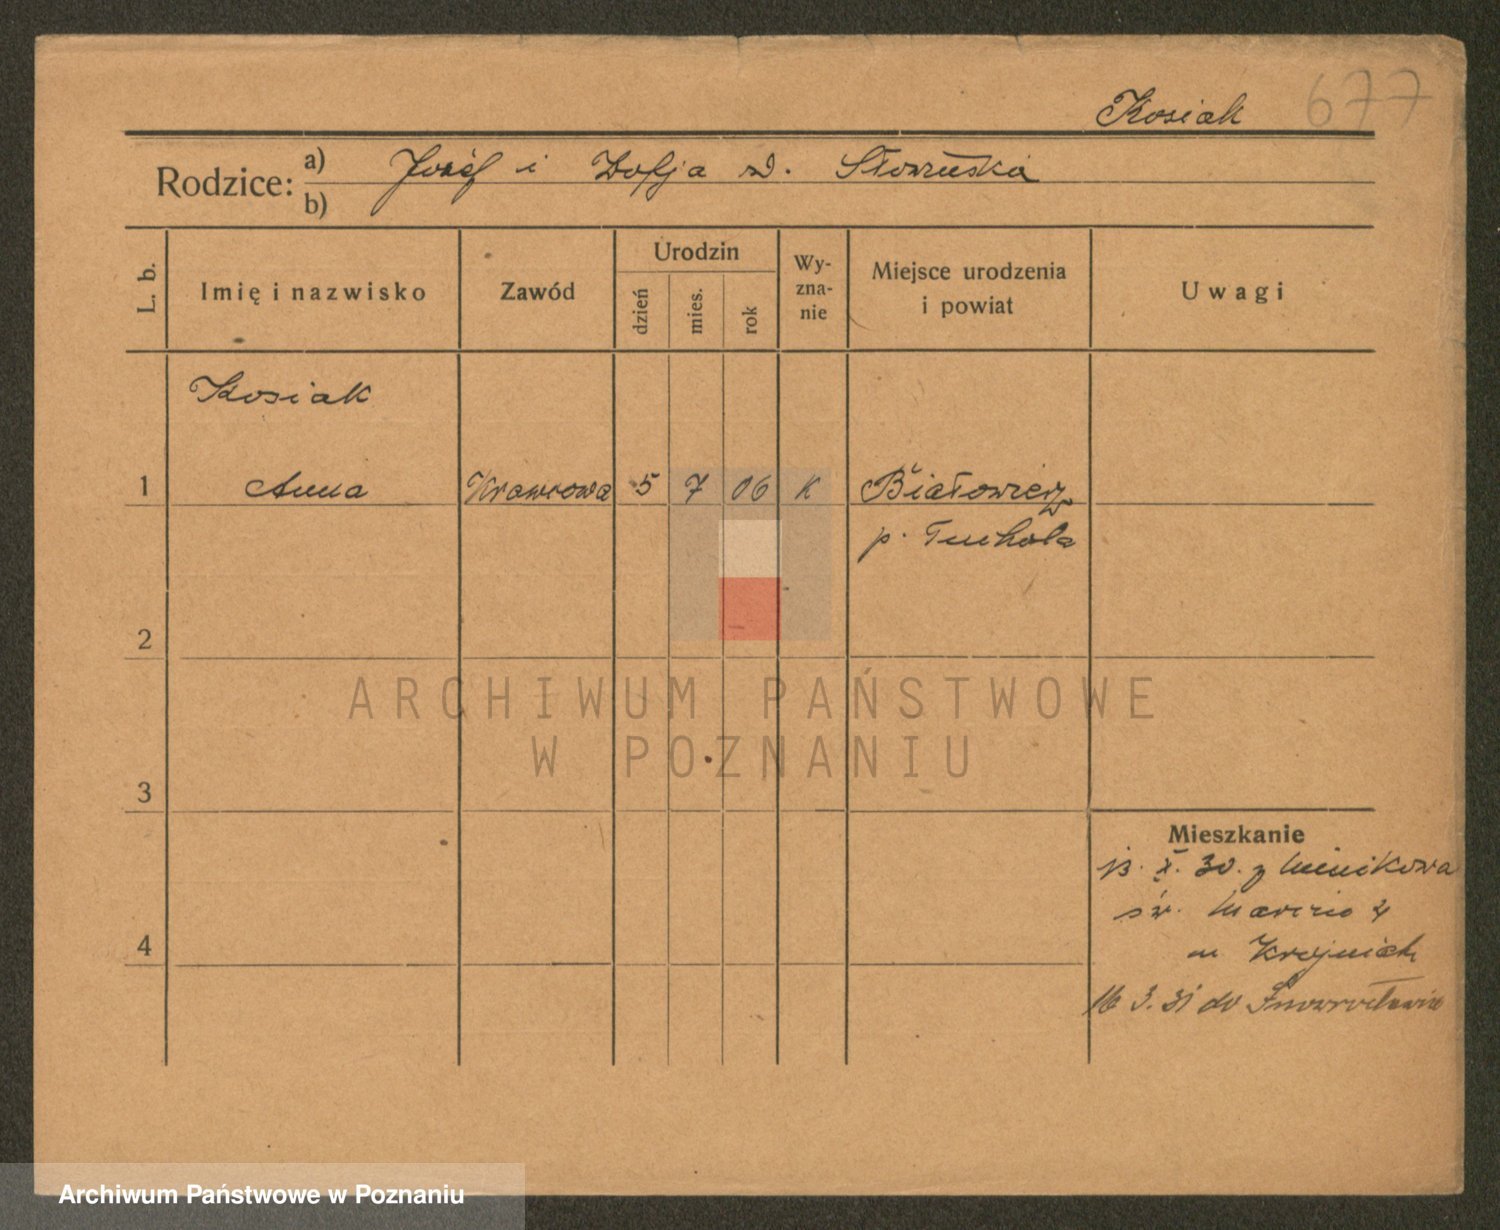 677
Kosiak
Rodzice: a) Józef i Zofja z d.
b)
L. b.
Imię i nazwisko
Zawód
Urodzin
dzień
mies.
rok
Wy-
zna-
nie
Miejsce urodzenia
i powiat
Uwagi
Kosiak
1 Anna Krawcowa 5 7 06 K Białowierz
p. Tuchola
2
ARCHIWUM PAŃSTWOWE
W POZNANIU
3
Mieszkanie
X. 30. z Minikowa
św. Marcin 4
4
u
16 3. 31 do Inowrocławia
Archiwum Państwowe w Poznaniu